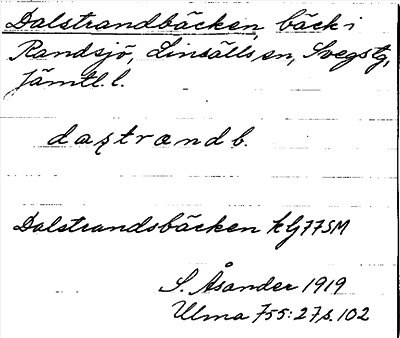 Dalstrandbäcken, bäck i
Randsjö, Linsälls sn, Svegs tg,
Jämtl. l.
dastrandb.
Dalstrandsbäcken kG77SM
S. Åsander 1919
Ulma 755:27 s. 102